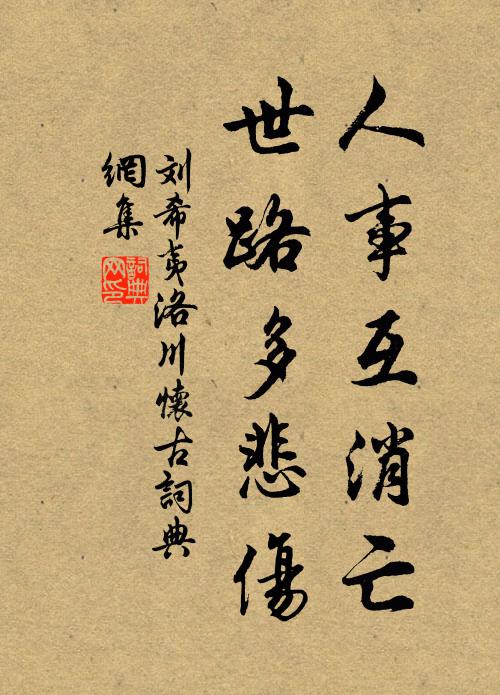 人事互消亡
世路多悲傷
刘希夷洛川懷古詞典
網集
詞典
网印